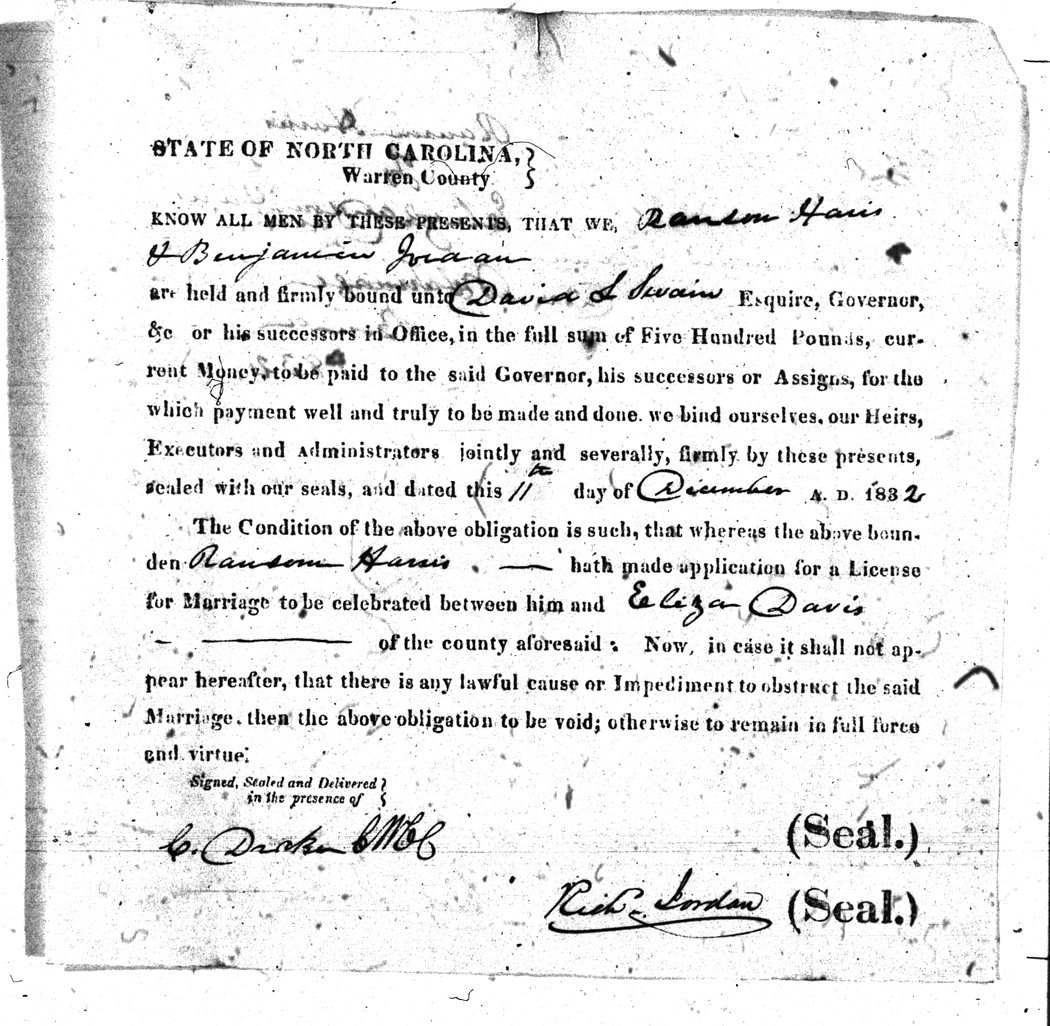 STATE OF NORTH CAROLINA,
Warren County
KNOW ALL MEN BY THESE PRESENTS, THAT WE, Ransom Haris
& Benjamin Jordan
are held and firmly bound unto David L Swain Esquire, Governor,
&c or his successors in Office, in the full sum of Five Hundred Pounds, cur-
rent Money, to be paid to the said Governor, his successors or Assigns, for the
which payment well and truly to be made and done. we bind ourselves, our Heirs,
Executors and Administrators jointly and severally, firmly by these presents,
sealed with our seals, and dated this 11th day of December A. D. 1832
The Condition of the above obligation is such, that whereas the above boun-
den Ransom Harris hath made application for a License
for Marriage to be celebrated between him and Eliza Davis
of the county aforesaid : Now, in case it shall not ap-
pear hereafter, that there is any lawful cause or Impediment to obstruct the said
Marriage, then the above obligation to be void; otherwise to remain in full force
and virtue.
Signed, Sealed and Delivered
in the presence of
C. Drake CWCC
(Seal.)
Rich. Jordan (Seal.)